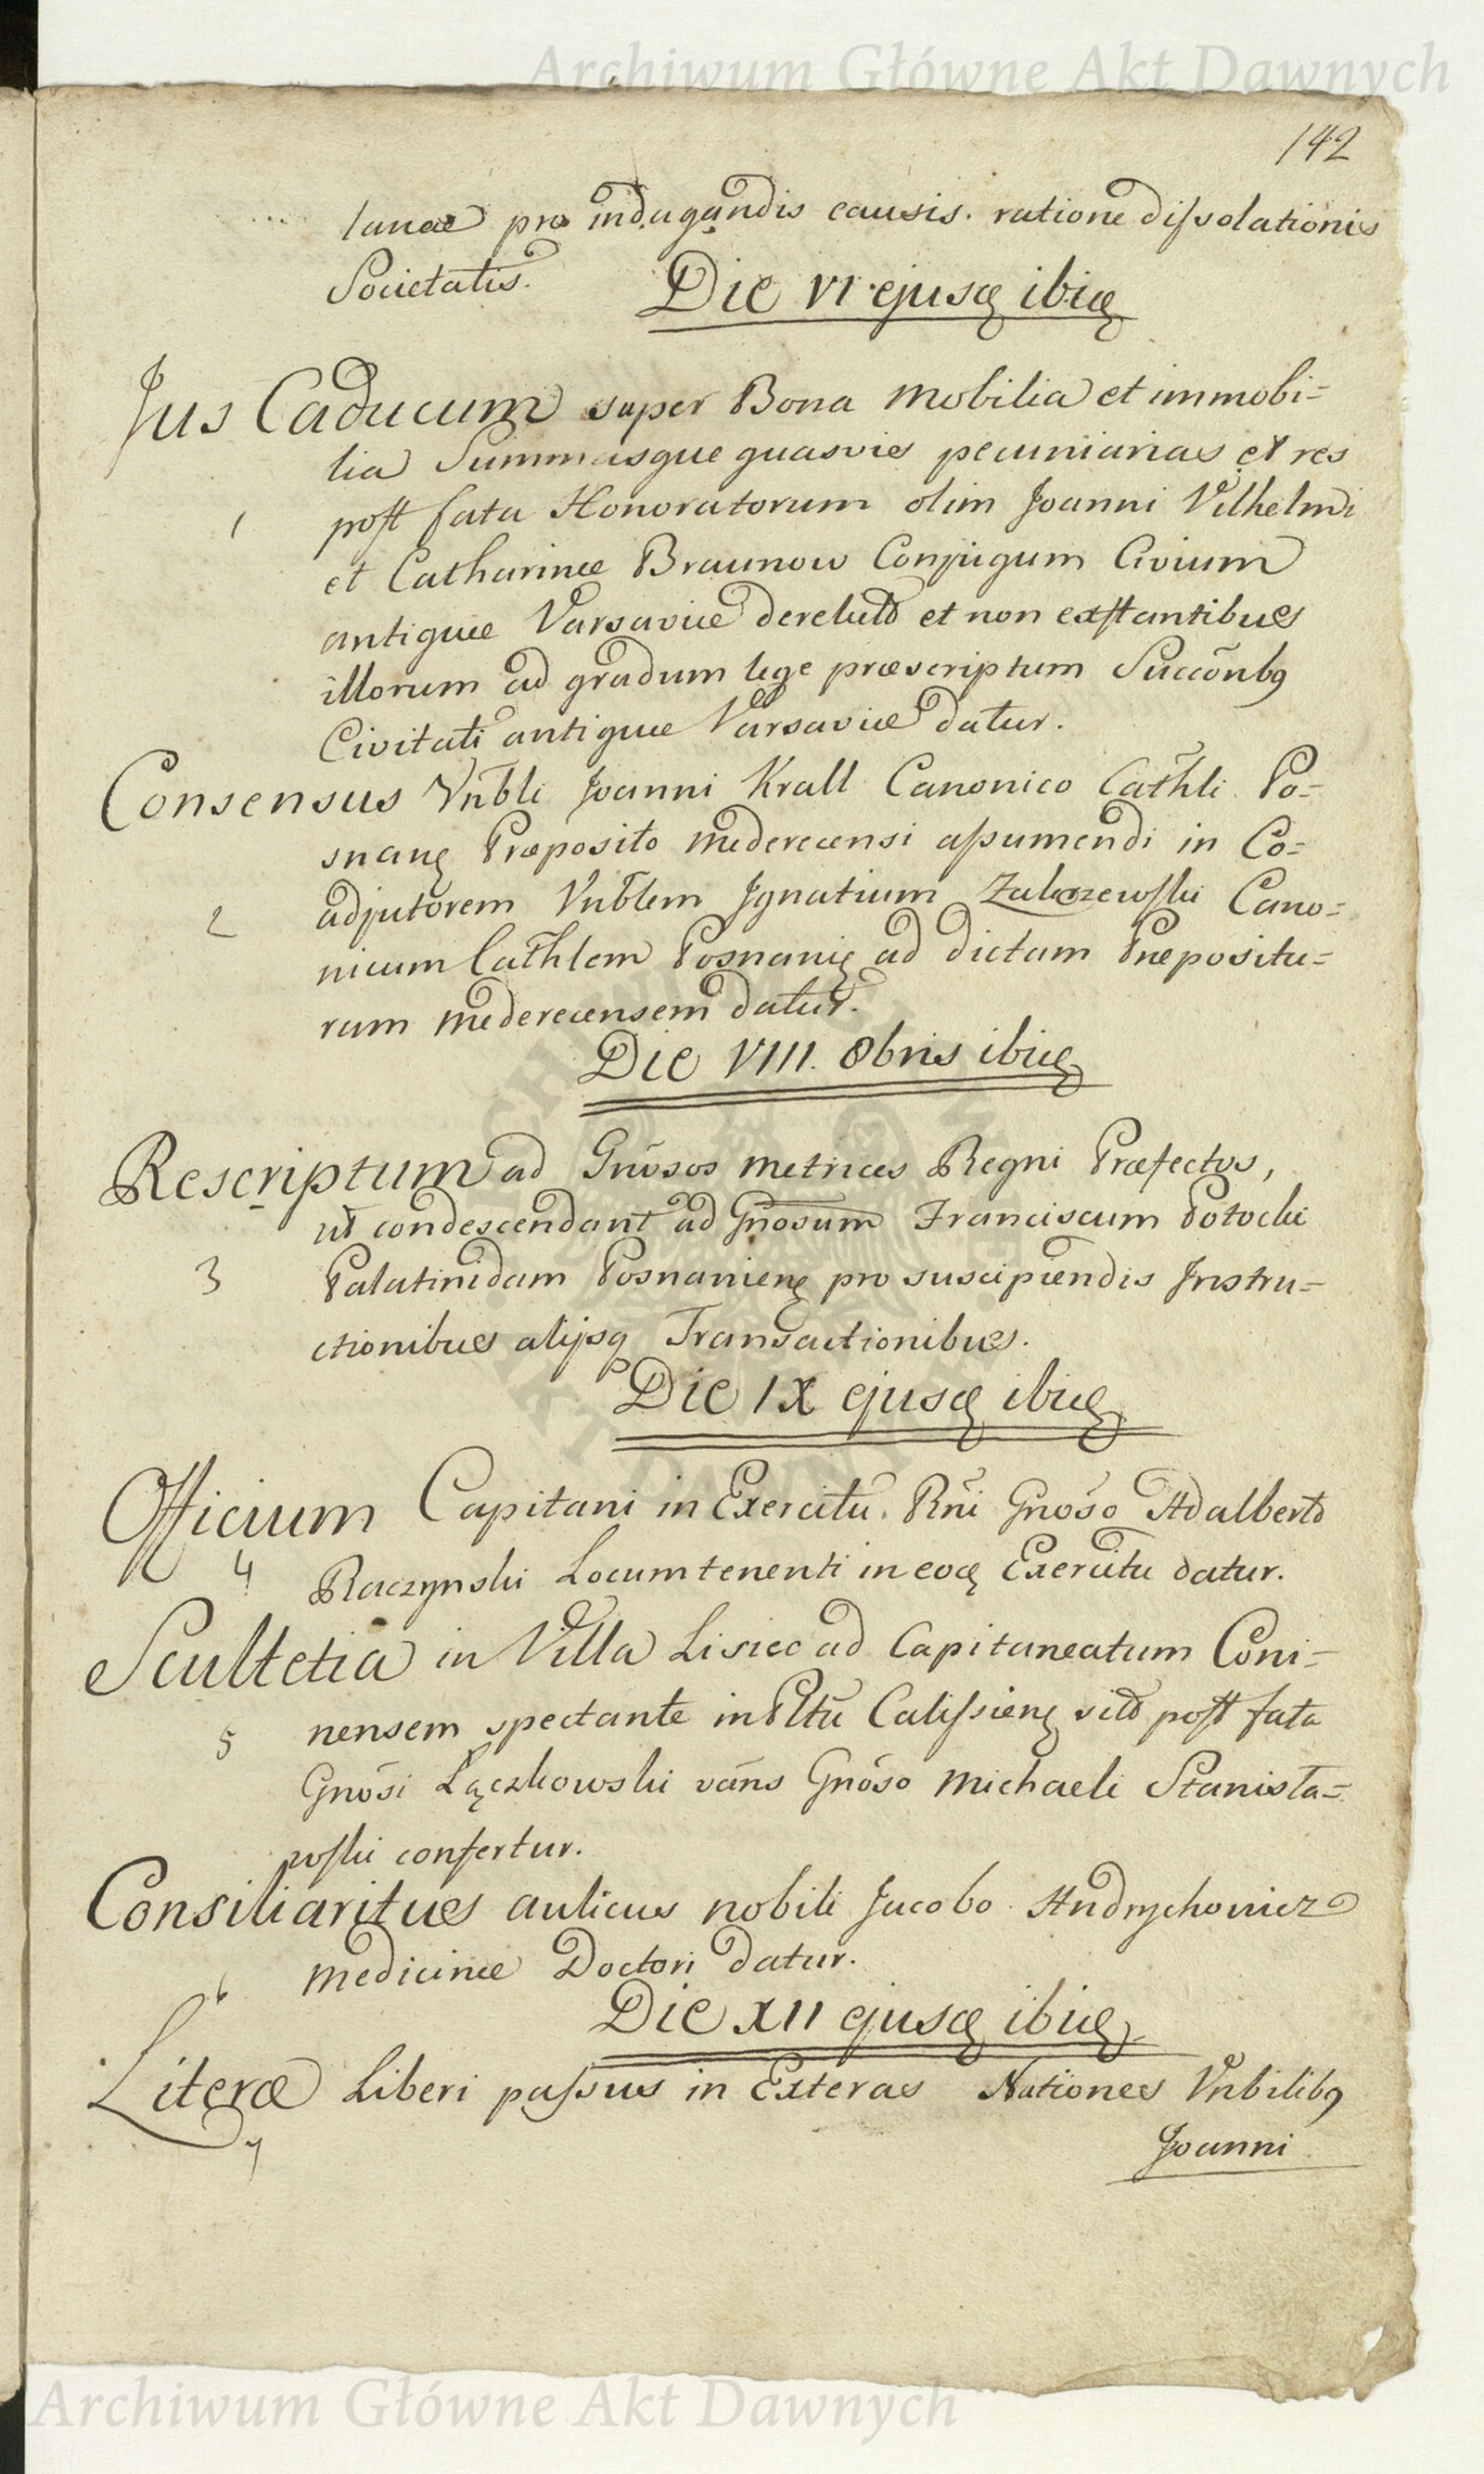 Archiwum Główne Akt Dawnych
142
lanae pro indagandis causis. ratione dissolationis
Societatis.
Die VI ejusq ibiq
Jus Caducum super Bona Mobilia et immobi=
lia Summasque quasvis pecuniarias et res
1 post fata Honoratorum olim Joanni Vilhelmi
et Catharinae Braunow Conjugum Civium
antiquae Varsaviae derelictō et non exstantibus
illorum ad gradum lege praescriptum Succōnbq
Civitati antiquae Varsaviae datur.
Consensus Vnbli Joanni Krall Canonico Cathli Po=
snanę Praeposito Mederecensi assumendi in Co=
2 adjutorem Vnblem Ignatium Zakrzewski Cano=
nicum Cathlem Posnanię ad dictam Praepositu=
ram Mederecensem datur.
Die VIII. 8bris ibiq
Rescriptum ad Gnōsos Metrices Regni Praefectos,
ut condescendant ad Gnosum Franciscum Potocki
3 Palatinidam Posnanienę pro suscipiendis Instru=
ctionibus alijsq Transactionibus.
Die IX ejusq ibiq
Officium Capitani in Exercitu Rni Gnōso Adalberto
4 Raczynski Locumtenenti in eoq Exercitu datur.
Scultetia in Villa Lisiec ad Capitaneatum Coni=
5 nensem spectante in Pltū Calissienę sitō post fata
Gnōsi Łączkowski vāns Gnōso Michaeli Stanisła=
wski confertur.
Consiliaritus aulicus nobili Jacobo Andrychowicz
6 Medicinae Doctori datur.
Die XII ejusq ibiq
Literae Liberi passus in Exteras Nationes Vnbilibq
7
Joanni
Archiwum Główne Akt Dawnych